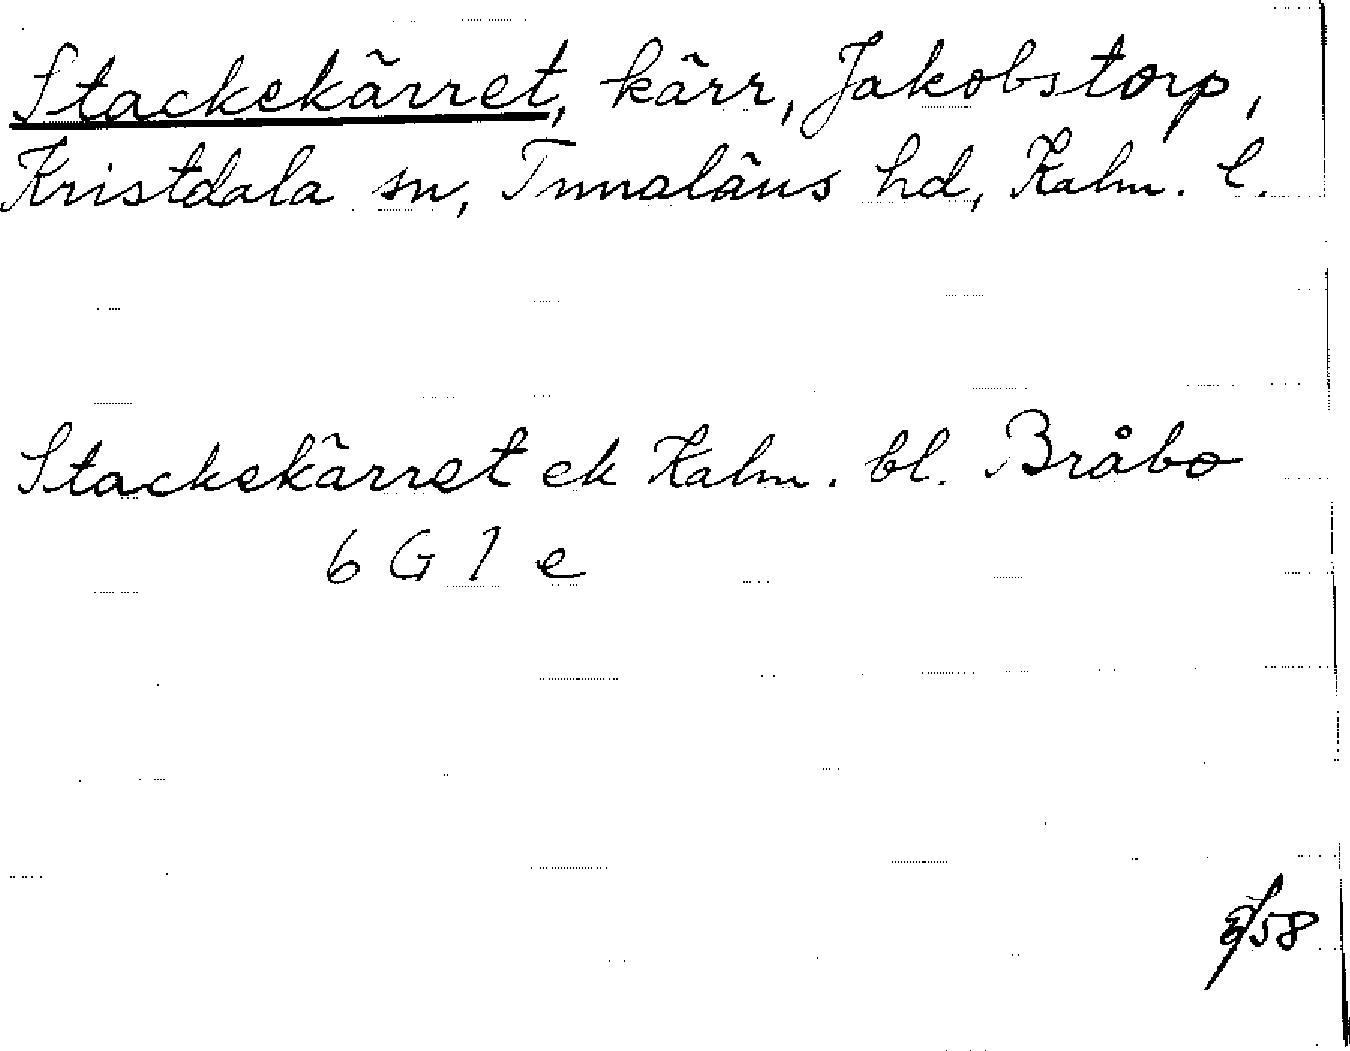 Stackekärret, kärr, Jakobstorp,
Kristdala sn, Tunaläns hd, Kalm. l.
Stackekärret ek Kalm. bl. Bråbo
6 G 1 e
/58